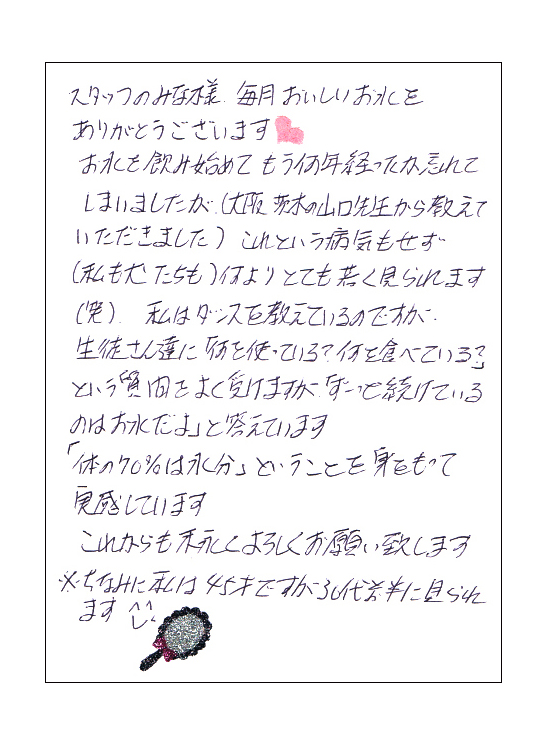 スタッフのみな様、毎月おいしいお水を
ありがとうございます
お水を飲み始めてもう何年経ったか忘れて
しまいましたが、(大阪 茨木の山口先生から教えて
いただきました)これという病気もせず
(私も犬たちも)何よりとても若く見られます
(笑)、私はダンスを教えているのですが、
生徒さん達に「何を使っている?何を食べている?」
という質問をよく受けますが「ずーっと続けている
のはお水だよ」と答えています
「体の70%は水分」ということを身をもって
実感しています
これからも末永くよろしくお願い致します
※ちなみに私は45才ですが30代前半に見られ
ます^^